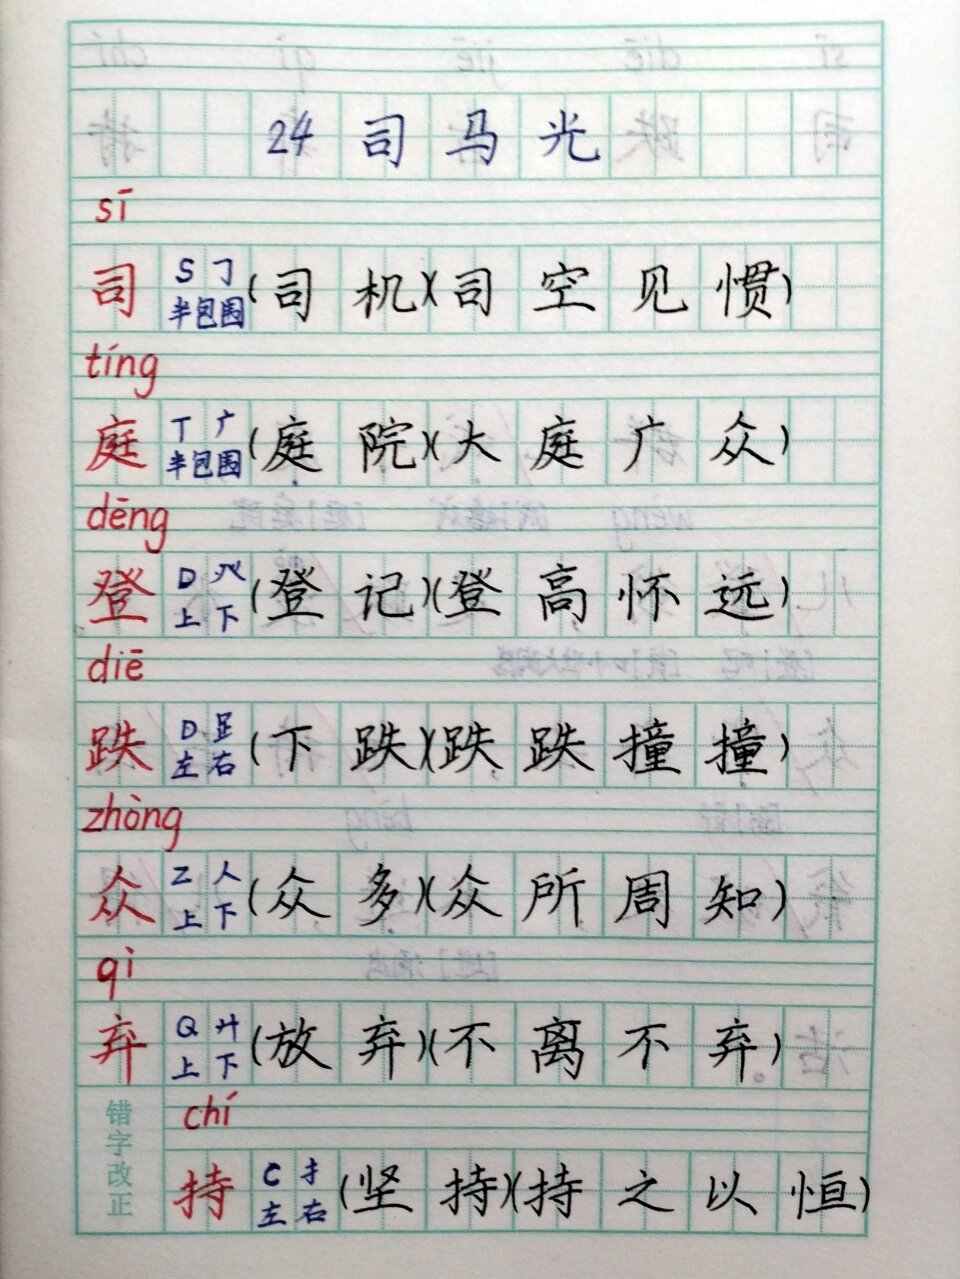 24 司马光
sī
司 S 𠃌 半包围 (司机)(司空见惯)
tíng
庭 T 广 半包围 (庭院)(大庭广众)
dēng
登 D 癶 上下 (登记)(登高怀远)
diē
跌 D 𧾷 左右 (下跌)(跌跌撞撞)
zhòng
众 Z 人 上下 (众多)(众所周知)
qì
弃 Q 廾 上下 (放弃)(不离不弃)
错字改正
chí
持 C 扌 左右 (坚持)(持之以恒)